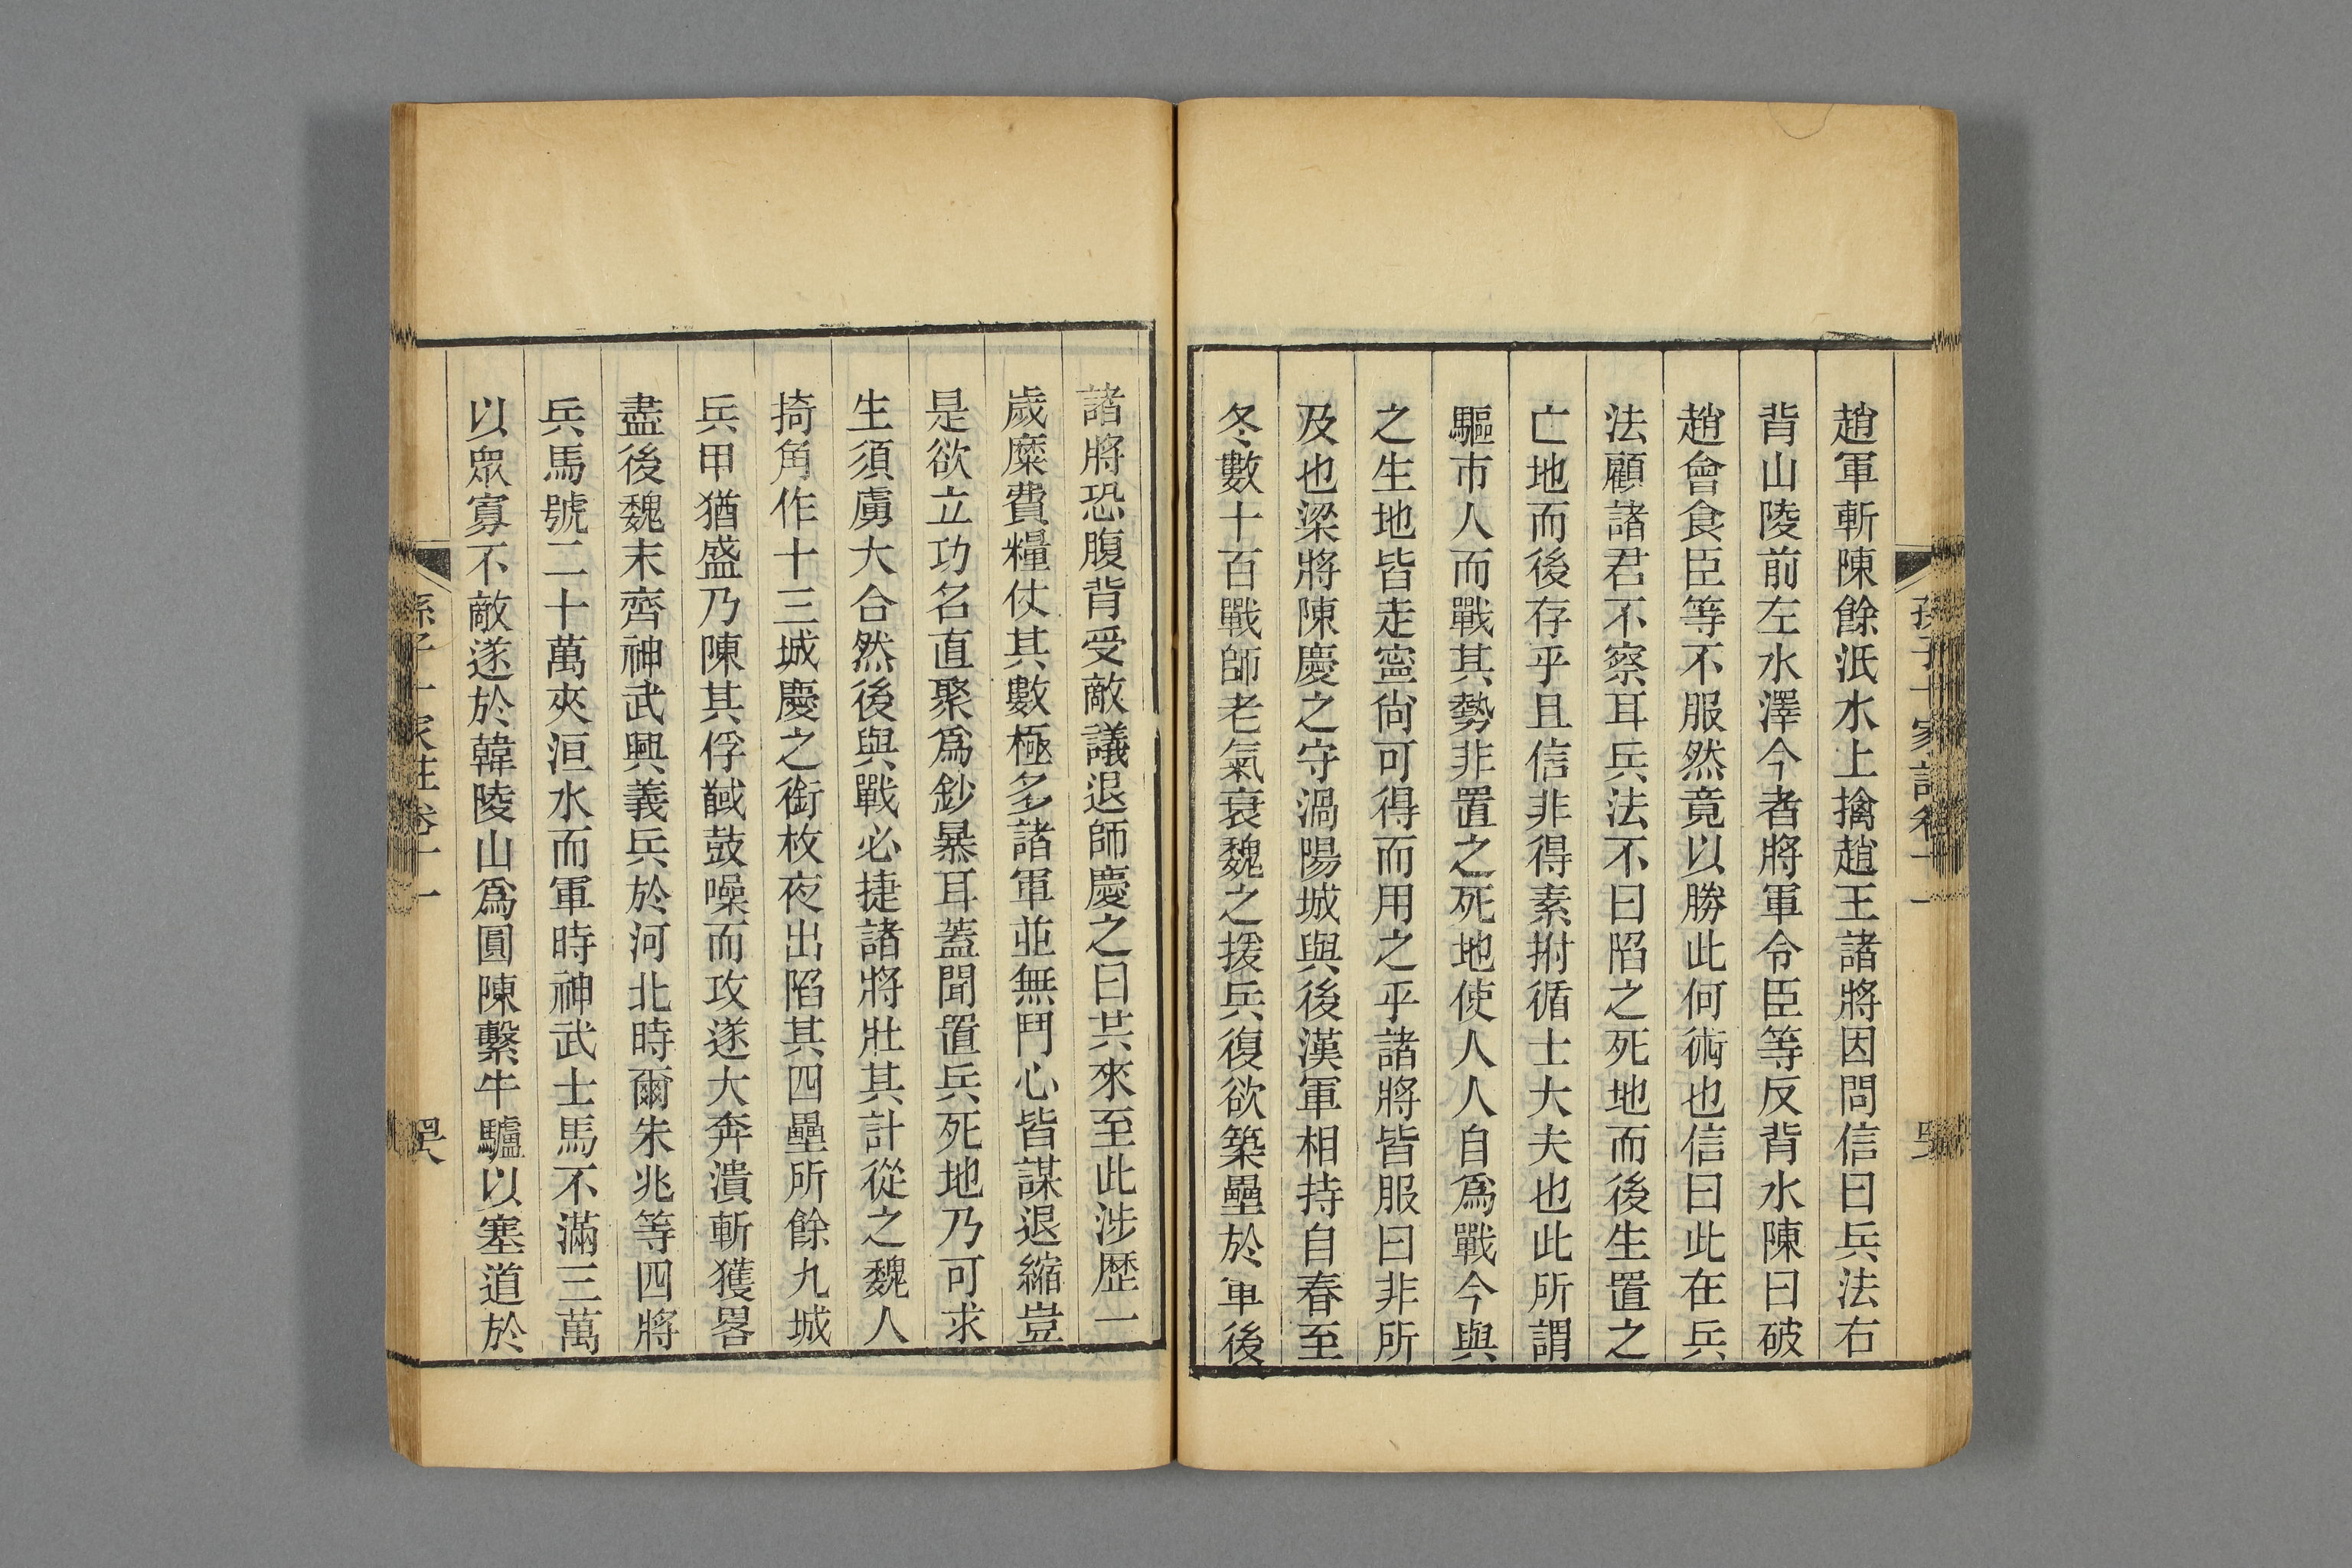 趙軍斬陳餘泜水上擒趙王諸將因問信曰兵法右
背山陵前左水澤今者將軍令臣等反背水陳曰破
趙會食臣等不服然竟以勝此何術也信曰此在兵
法顧諸君不察耳兵法不曰陷之死地而後生置之
亡地而後存乎且信非得素拊循士大夫也此所謂
驅市人而戰其勢非置之死地使人人自爲戰今與
之生地皆走寍尙可得而用之乎諸將皆服曰非所
及也梁將陳慶之守渦陽城與後漢軍相持自春至
冬數十百戰師老氣衰魏之援兵復欲築壘於軍後
諸將恐腹背受敵議退師慶之曰共來至此涉歴一
歲糜費糧仗其數極多諸軍並無鬥心皆謀退縮豈
是欲立功名直聚爲鈔暴耳蓋聞置兵死地乃可求
生須虜大合然後與戰必捷諸將壯其計從之魏人
掎角作十三城慶之銜枚夜出陷其四壘所餘九城
兵甲猶盛乃陳其俘馘鼓噪而攻遂大奔潰斬獲畧
盡後魏末齊神武興義兵於河北時爾朱兆等四將
兵馬號二十萬夾洹水而軍時神武士馬不滿三萬
以眾寡不敵遂於韓陵山爲圓陳繫牛驢以塞道於
孫子十家註卷十一